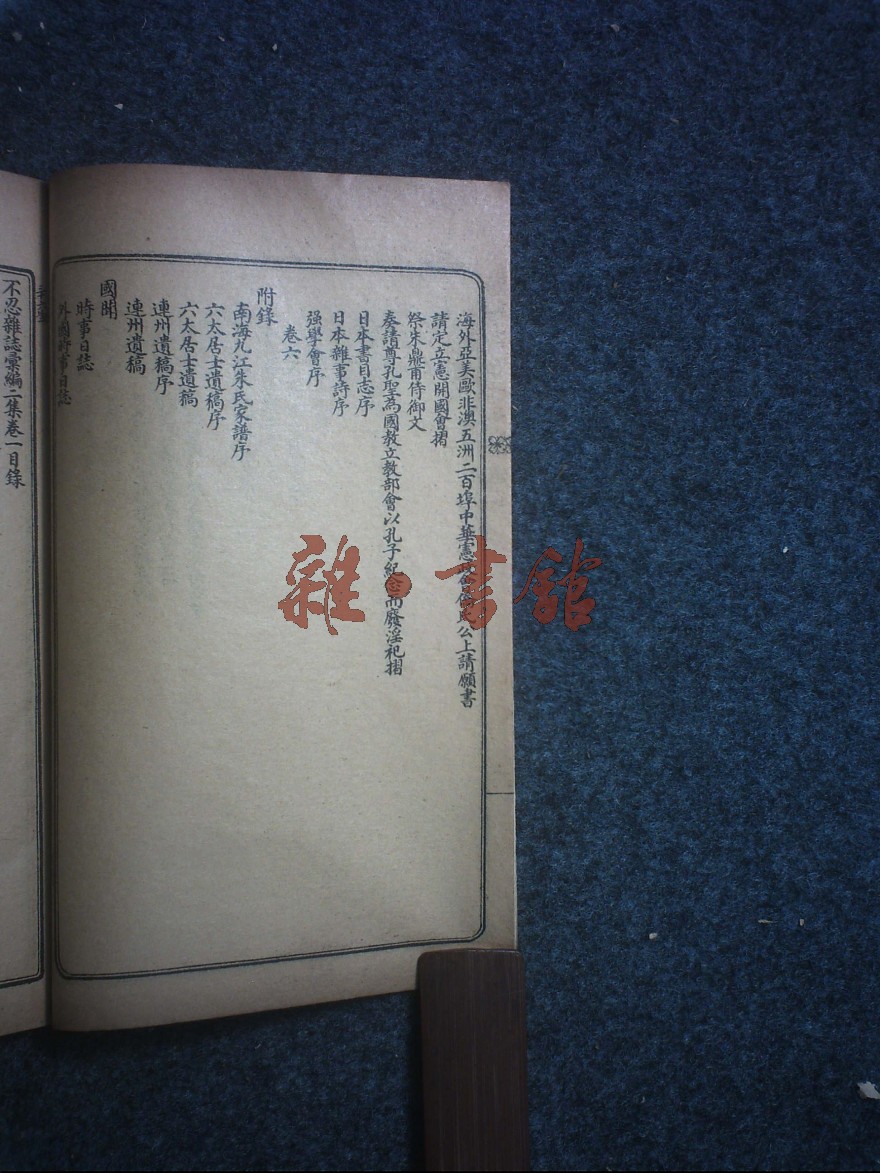 海外亞美歐非澳五洲二百埠中華憲公上請願書
請定立憲開國會摺
祭朱鼎甫侍御文
奏請尊孔聖為國教立教部會以孔子紀而廢淫祀摺
日本書目志序
日本雜事詩序
强學會序
卷六
附錄
南海九江朱氏家譜序
六太居士遺稿序
六太居士遺稿
連州遺稿序
連州遺稿
國聞
時事日誌
外國時事日誌
不忍雜誌彙編二集卷一目錄
雜·書館